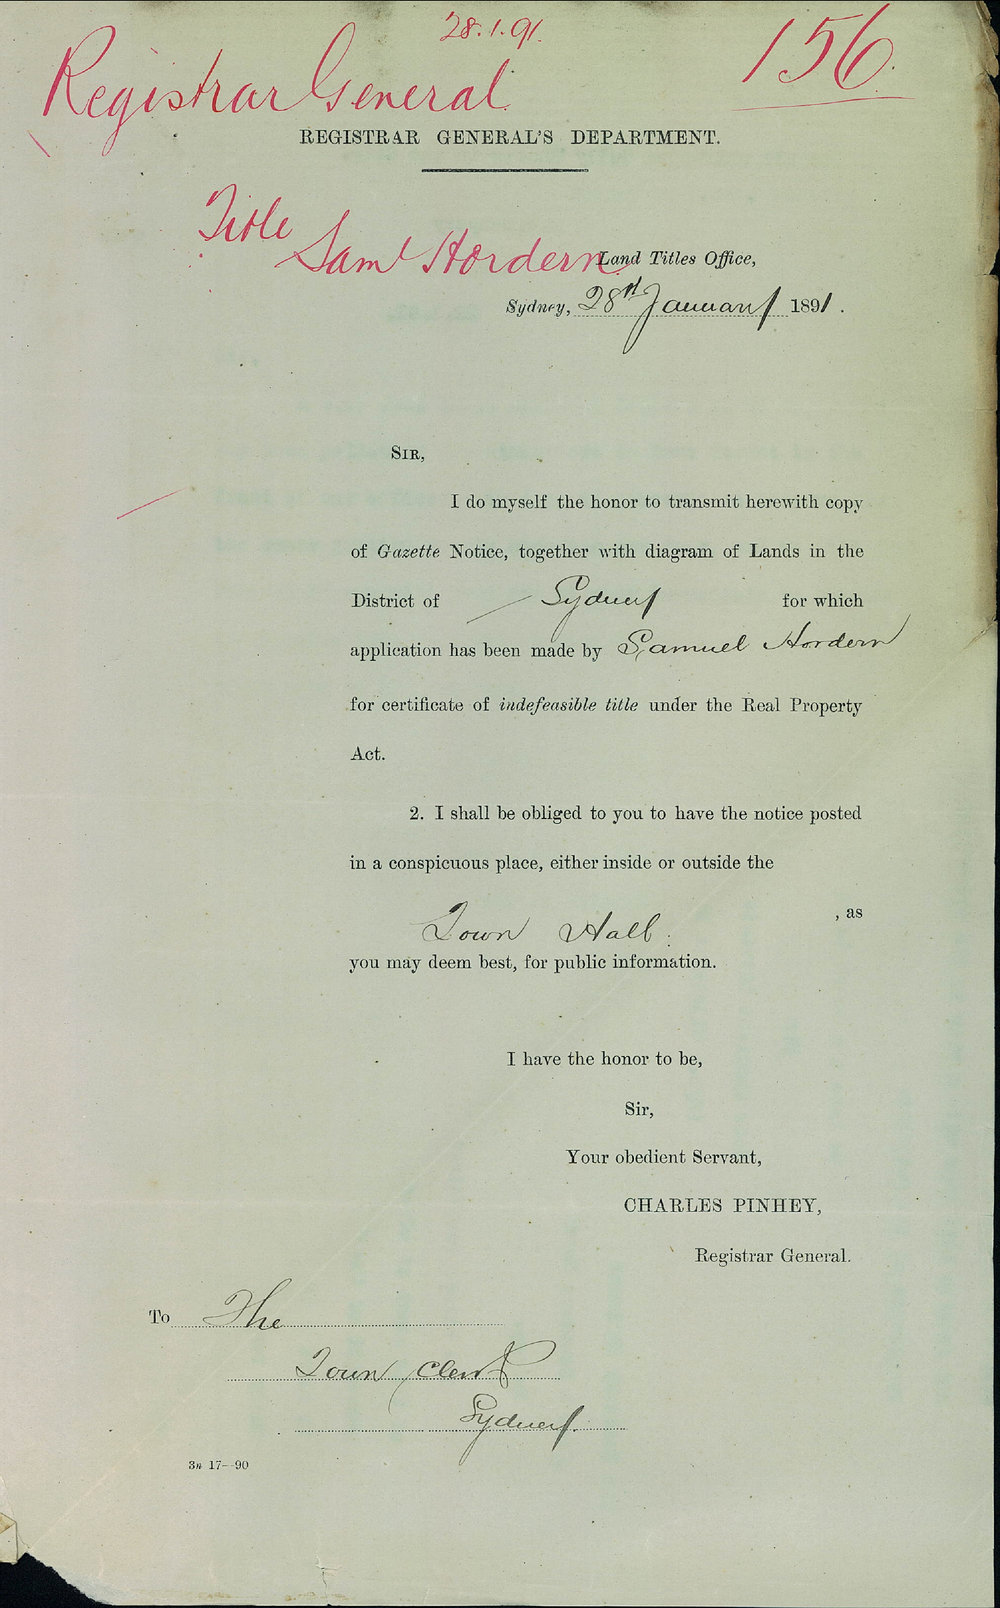 28.1.91.
156
Registrar General
REGISTRAR GENERAL'S DEPARTMENT.
Title
Saml Hordern
Land Titles Office,
Sydney, 28th January 1891.
SIR,
I do myself the honor to transmit herewith copy
of Gazette Notice, together with diagram of Lands in the
District of Sydney for which
application has been made by Samuel Hordern
for certificate of indefeasible title under the Real Property
Act.
2. I shall be obliged to you to have the notice posted
in a conspicuous place, either inside or outside the
Town Hall , as
you may deem best, for public information.
I have the honor to be,
Sir,
Your obedient Servant,
CHARLES PINHEY,
Registrar General.
To The
Town Clerk
Sydney.
3n 17--90